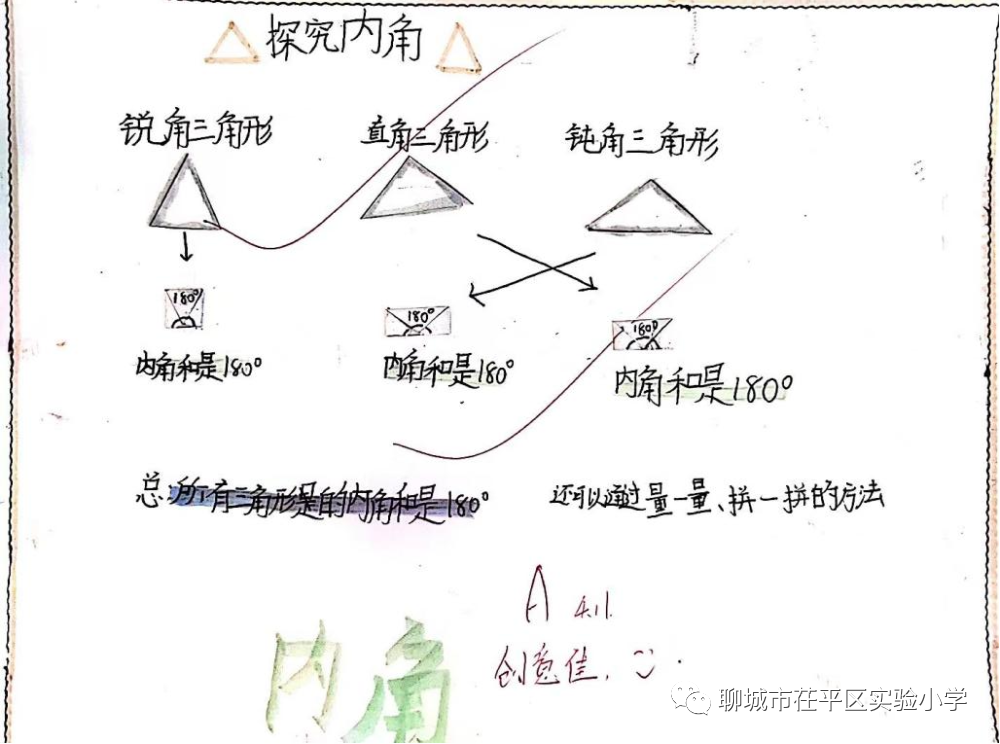 探究内角
锐角三角形 直角三角形 钝角三角形
180° 180° 180°
内角和是180° 内角和是180° 内角和是180°
总:所有三角形是的内角和是180° 还可以通过量一量、拼一拼的方法
A 4.11.
创意佳.
内角
聊城市茌平区实验小学